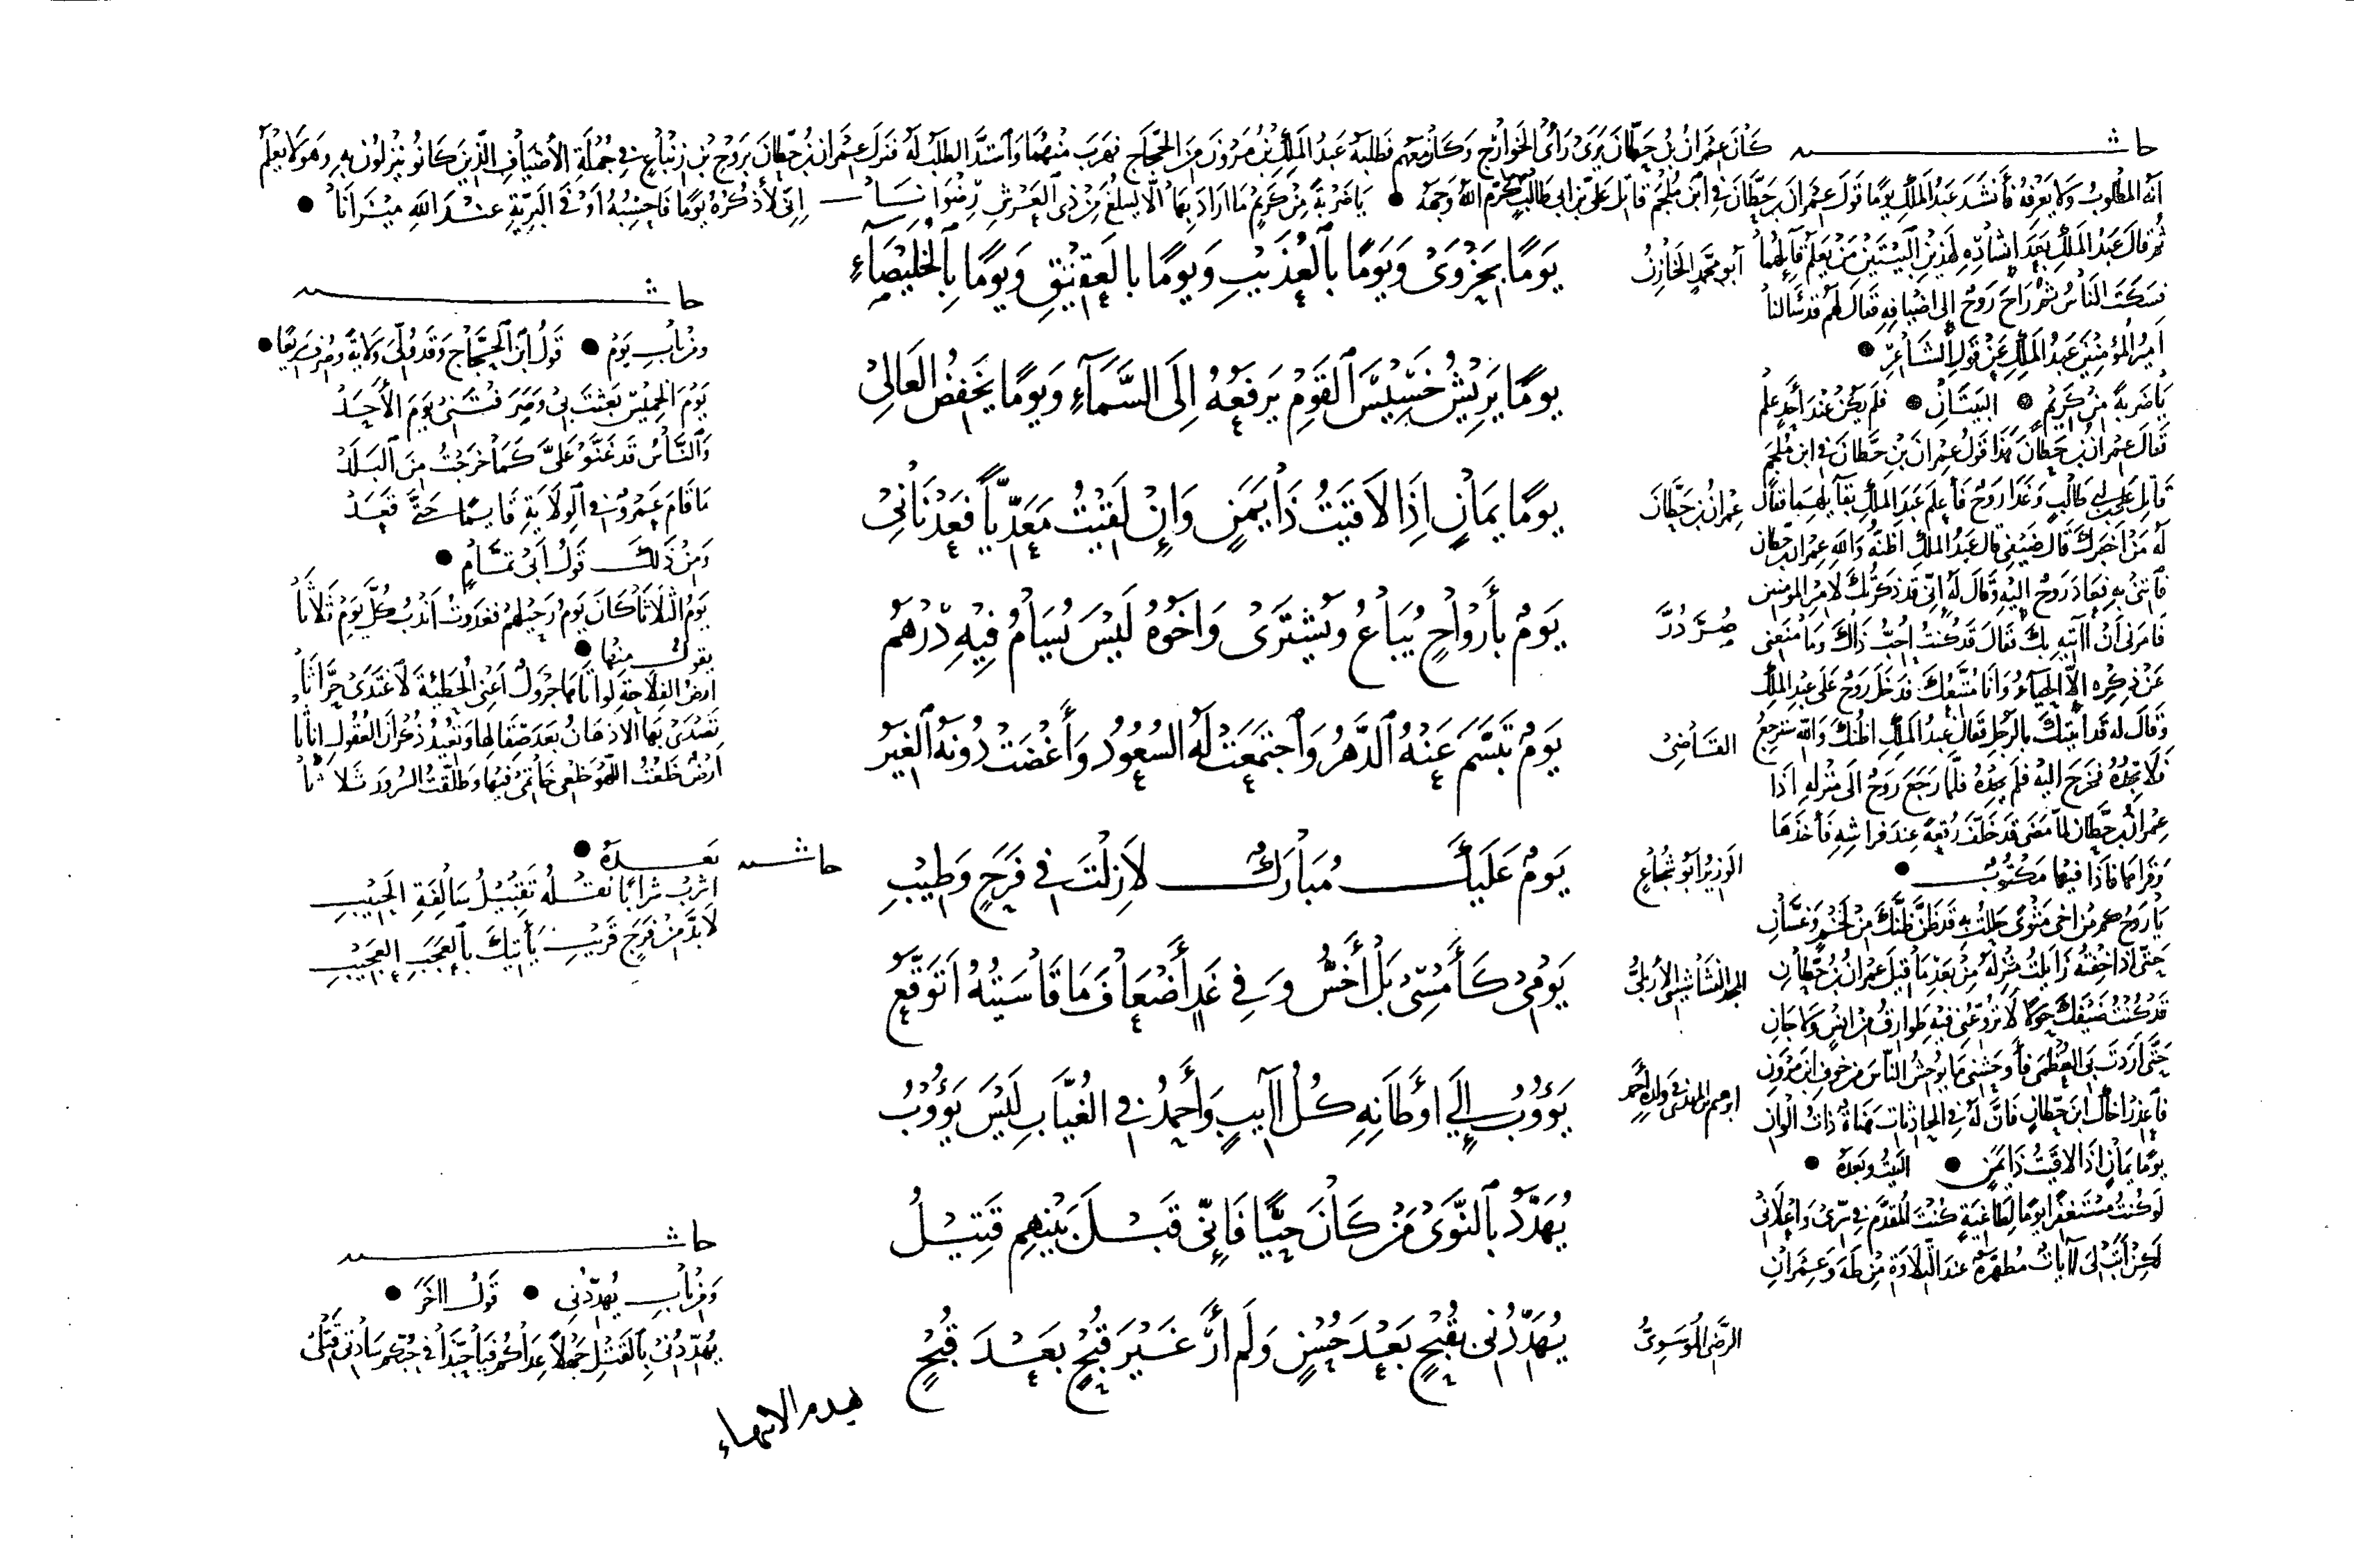 حاشية كَانَ عِمْرَانُ بْنُ حِطَّانَ يَرَى رَأْىَ الخَوَارِجِ وَكَانَ مَعَهُم فَطَلَبَهُ عَبْدُ المَلِكِ بْنُ مَرْوَنَ مِنَ الحَجَّاجِ فَهَرَبَ مِنْهُمَا وَاشْتَدَّ الطَّلَبُ لَهُ فَنَزَلَ عِمْرَانُ بْنُ حِطَّانَ بِرَوْحِ بْنِ زِنْبَاعٍ فِي جُمْلَةِ الأَضْيَافِ الَّذِينَ كَانُو يَنْزِلُونَ بِهِ وَهوَ لَا يَعْلَم
أَنَّهُ المَطْلُوبُ وَلَا يَعْرِفُهُ فَأَنْشَدَ عَبْدُ المَلِكِ يَوْمًا قَوْلَ عِمْرَانَ بْنِ حِطَّانَ فِي ابْنِ مُلْجَم قَاتِلِ عَلِيِّ بْنِ أبي طَالِبٍ كَرَّمَ اللهُ وَجْهَهُ • يَا ضَرْبَةً مِنْ كَرِيْمٍ مَا أَرَادَ بِهَا إِلَّا لِيَبْلُغَ مِنْ ذِي العَرْشِ رِضْوَانَا إِنِّي لَأَذْكُرُهُ يَوْمًا فَأَحْسِبُهُ أَوْفَى البَرِيَّةِ عِنْدَ اللهِ مِيْزَانَا •
ثُمَّ قَالَ عَبْدُ المَلِكِ بَعْدَ إِنْشَادِهِ لِهَذَيْنِ البَيْتَيْنِ مَنْ يَعْلَمُ قَائِلَهُمَا
فَسَكَتَ النَّاسُ ثُمَّ رَاحَ رَوْحٌ إِلَى أَضْيَافِهِ فَقَالَ لَهُم قَدْ سَأَلَنَا
أَمِيْرُ المُؤْمِنِيْنَ عَبْدُ المَلِكِ عَنْ قَوْلِ الشَّاعِرِ •
يَا ضَرْبَةً مِنْ كَرِيْمٍ • البَيْتَانِ • فَلَمْ يَكُنْ عِنْدَ أَحَدٍ عِلْمٌ
فَقَالَ عِمْرَانُ بْنُ حِطَّانَ هَذَا قَوْلُ عِمْرَانَ بْنِ حِطَّانَ فِي ابْنِ مُلْجَمِ
قَاتِلِ عَلِيِّ بْنِ أبي طَالِبٍ وَغَدَا رَوْحٌ فَأَعْلَمَ عَبْدَ المَلِكِ بِقَائِلِهِمَا فَقَالَ
لَهُ مَنْ أَخْبَرَكَ قَالَ ضَيْفِي قَالَ عَبْدُ المَلِكِ أَظُنُّهُ وَاللهِ عِمْرَانَ بْنَ حِطَّانِ
فَأْتِنِي بِهِ فَعَادَ رَوْحٌ إِلَيْهِ وَقَالَ لَهُ إِنِّي قَدْ ذَكَرْتُكَ لأَمِيْرِ المُؤْمِنِيْنَ
فَأَمَرَنِي أَنْ آتِيَهِ بِكَ فَقَالَ قَدْ كُنْتُ أُحِبُّ ذَاكَ وَمَا مَنَعَنِي
عَنْ ذِكْرِهِ إِلَّا الحَيَاءُ وَأَنَا مُتَّبِعُكَ فَدَخَلَ رَوْحٌ عَلَى عَبْدِ المَلِكِ
وَقَالَ لَه قَدْ أَتَيْتُكَ بِالرَّجُلِ فَقَالَ عَبْدُ المَلِكِ أَظُنُّكَ وَاللهِ سَتَرْجِعُ
فَلَا تَجِدُهُ فَخَرَجَ إِلَيْهِ فَلَمْ يَجِدْهُ فَلَمَّا رَجَعَ رَوْحٌ إِلَى مَنْزِلِهِ إِذَا
عِمْرَانُ بْنُ حِطَّانَ لَمَّا مَضَى قَدْ خَلَّفَ رُقْعَةً عِنْدَ فِرَاشِهِ فَأَخَذَهَا
وَقَرَأَهَا فَإِذَا فِيْهَا مَكْتُوْبٌ •
يَا رَوْحُ كَمْ مِنْ أَخِي مَثْوًى حَلَلْتُ بِهِ قَدْ ظَنَّ ظَنَّكَ مِنْ لَخْمٍ وَغَسَّانِ
حَتَّى إِذَا خِفْتُهُ زَايَلْتُ مَنْزِلَهُ مِنْ بَعْدِ مَا قِيْلَ عِمْرَانُ بْنُ حِطَّانِ
قَدْ كُنْتُ ضَيْفَكَ حَوْلًا لَا تُرَوِّعُنِي فِيْهِ طَوَارِقُ مِنْ إِنْسٍ وَلَا جَانِ
حَتَّى أَرَدْتَ بِيَ العُظْمَى فَأَوْحَشَنِي مَا يُوحِشُ النَّاسَ مِنْ خَوْفِ ابْنِ مَرْوَنِ
فَاعْذُرْ أَخَاكَ ابْنَ حِطَّانٍ فَإِنَّ لَهُ فِي الحَادِثَاتِ هَنَاةً ذَاتَ أَلْوَانِ
يَوْمًا يَمَانٍ إِذَا لَاقَيْتُ ذَا يَمَنٍ • البَيْتُ وَبَعْدَهُ •
لَوْ كُنْتُ مُسْتَغْفِرًا يَوْمًا لِطَاغِيَةٍ كُنْتَ المُقَدَّمَ فِي سِرِّي وَإِعْلَانِي
لَكِنْ أَبَتْ لِي آيَاتٌ مُطَهَّرَةٌ عِنْدَ التِّلَاوَةِ مِنْ طَهَ وَعِمْرَانِ
أَبُو مُحَمَّدٍ الخَازِنُ يَوْمًا بِحُزْوَى وَيَوْمًا بِالعُذَيْبِ وَيَوْمًا بِالعَقِيْقِ وَيَوْمًا بِالخُلَيْصَاءِ
يَوْمًا يَرِيْشُ خَسِيْسَ القَوْمِ يَرفَعُهُ إِلَى السَّمَآءِ وَيَوْمًا يَخْفِضُ العَالِي
عِمْرَانُ بْنُ حِطَّانَ يَوْمًا يَمَانٍ إِذَا لَاقَيْتُ ذَا يَمَنٍ وَإِنْ لَقِيْتُ مَعَدِّيًّا فَعَدْنَانِي
صُرَّدُرَّ يَوْمٌ بِأَرْوَاحٍ يُبَاعُ وَيُشْتَرَى وَأَخُوْهُ لَيْسَ يُسَامُ فِيْهِ دِرْهَمُ
القَاضِي يَوْمٌ تَبَسَّمَ عَنْهُ الدَّهْرُ وَاجْتَمَعَتْ لَهُ السُعُوْدُ وَأَغْضَتْ دُوْنَهُ الغِيَرُ
الوَزِيْرُ أَبُو شُجَاعٍ يَوْمٌ عَلَيْكَ مُبَارَكٌ لَازِلْتَ فِي فَرَحٍ وَطِيْبِ
المَجْدُ النَّشَّابِيُّ الإِرْبِلِيُّ يَوْمِي كَأَمْسِي بَلْ أَخَسُّ وَفِي غَدٍ أَضْعَافَ مَا قَاسَيْتُهُ أَتَوَقَّعُ
يَؤُوْبُ إِلَى أَوْطَانِهِ كُلُّ آيِبٍ وَأَحْمَدُ فِي الغُيَّابِ لَيْسَ يَؤُوْبُ
يُهَدَّدُ بِالنَّوَى مَنْ كَانَ حَيًّا فَإِنِّي قَبْلَ بَيْنِهِمِ قَتِيْلُ
الرَّضِيُّ المُوْسَوِيُّ يُهَدِّدُنِي بِقُبْحٍ بَعْدَ حُسْنٍ وَلَم أَرَ غَيْرَ قُبْحٍ بَعْدَ قُبْحِ
حاشية
وَمِنْ بَابِ يَوْم • قَوْلُ ابْنِ الحَجَّاجِ وَقَدْ وُلِّيَ وِلَايَةً وَصُرِفَ سَرِيْعًا •
يَوْمَ الخَمِيْسِ بَعَثْتَ بِي وَصَرَفْتَنِي يَوْمَ الأَحَدْ
وَالنَّاسُ قَدْ غَنَّوْ عَلَيَّ كَمَا خَرَجْتُ مِنَ البَلَدْ
مَا قَامَ عَمْرٌو فِي الوِلَايَةِ قَايِمًا حَتَّى قَعَدْ
وَمِنْ ذَلِكَ قَوْلُ أَبِي تَمَّامٍ •
يَوْمُ الثَّلَاثَا كَانَ يَوْمُ رَحِيْلِهِمْ فَغَدَوْتُ أَنْدُبُ كُلَّ يَوْمٍ ثَلَاثَا
يقول منها •
أَرْضُ الفِلَاحَةِ لَو أَتَاهَا جَرْوَلٌ أَعْنِي الحُطَيْئَةَ لَاغْتَدَى حَرَّاثَا
تَصْدَى بِهَا الأَذْهَانُ بَعْدَ صِقَالِهَا وَتُعِيْدُ ذُكْرَانَ العُقُوْلِ إِنَاثَا
أَرْضٌ خَلَعْتُ اللَّهْوَ خَلْعِي خَاتَمِي فِيْهَا وَطَلَّقْتُ السُّرُورَ ثَلَاثَا
حاشية بَعْدَهُ •
اشْرَبْ شَرَابًا نَقْلُهُ تَقْبِيْلُ سَالِفَةِ الحَبِيْبِ
لَا بُدَّ مِنْ فَرَجٍ قَرِيْبٍ يَأْتِيْكَ بِالعَجَبِ العَجِيْبِ
حاشية
وَمِنْ بَابِ يُهَدِّدُنِي • قَوْلُ آخَرَ •
يُهَدِّدُنِي بِالقَتْلِ جَهْلًا عِدَاكُم فَيَا حَبَّذَا فِي حُبِّكُم سَادَتِي قَتْلِي